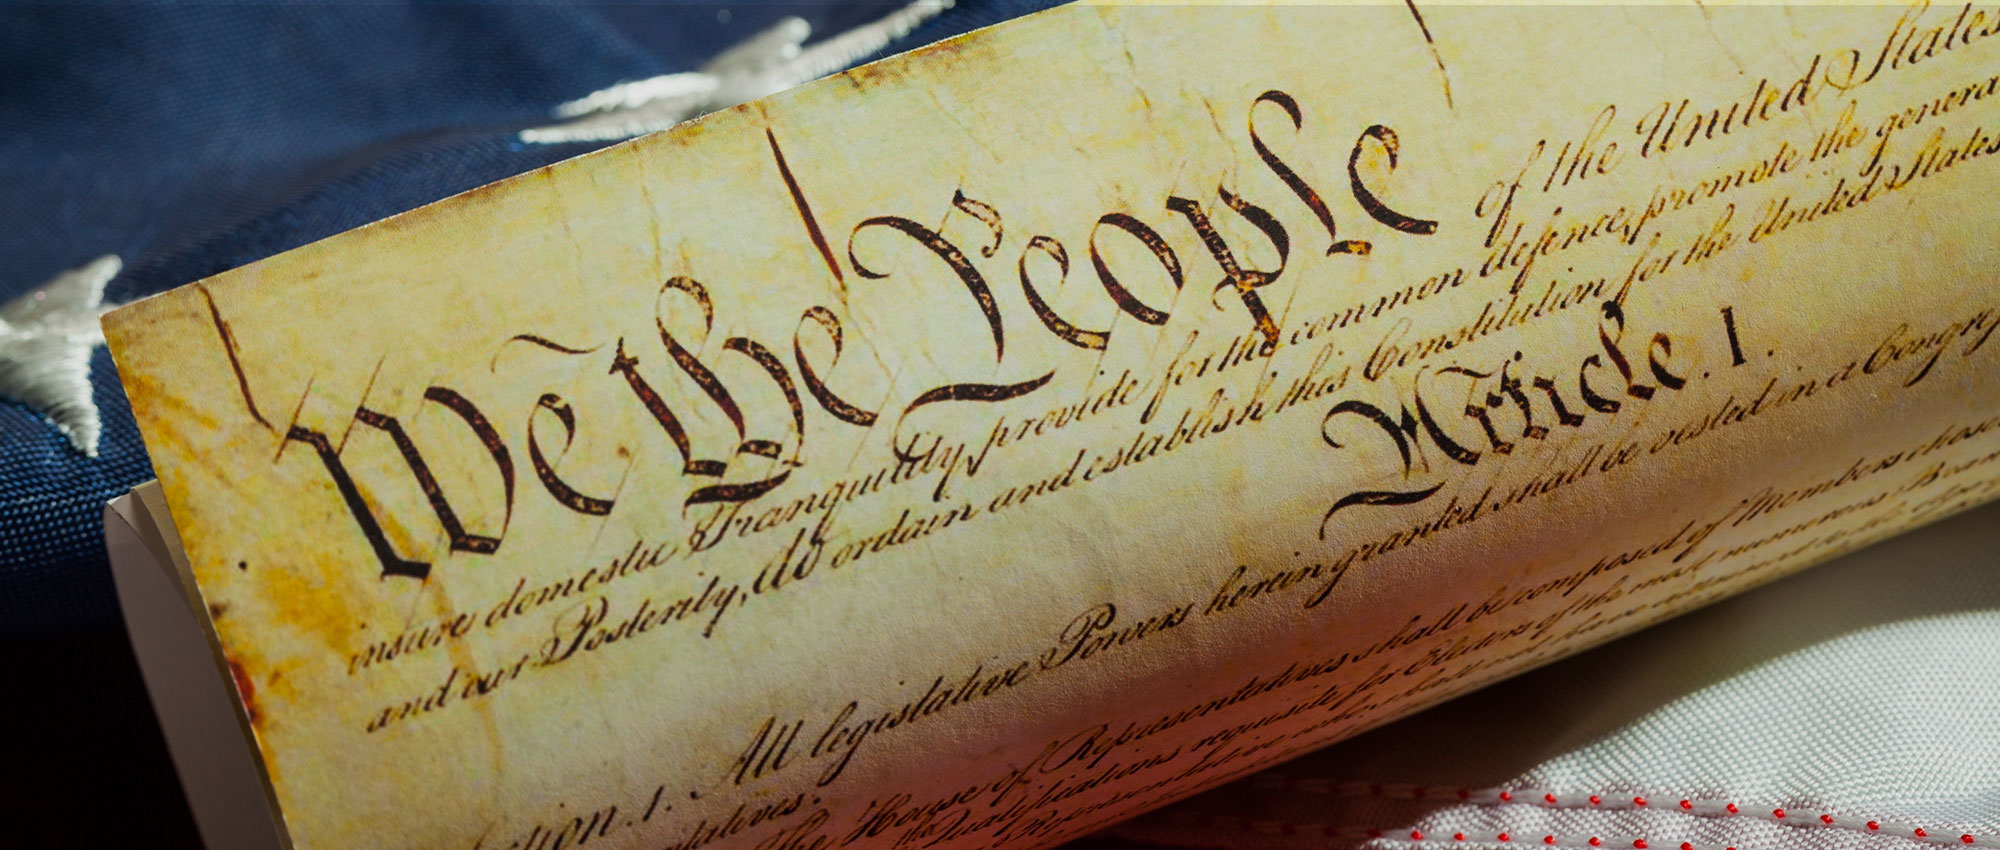 We the People of the United States
insure domestic Tranquility, provide for the common defence, promote the general
and our Posterity, do ordain and establish this Constitution for the United States
Article. I.
ction. 1. All legislative Powers herein granted shall be vested in a Congress
ntatives.
The House of Representatives shall be composed of Members chosen
the Qualifications requisite for Electors of the most numerous Bran